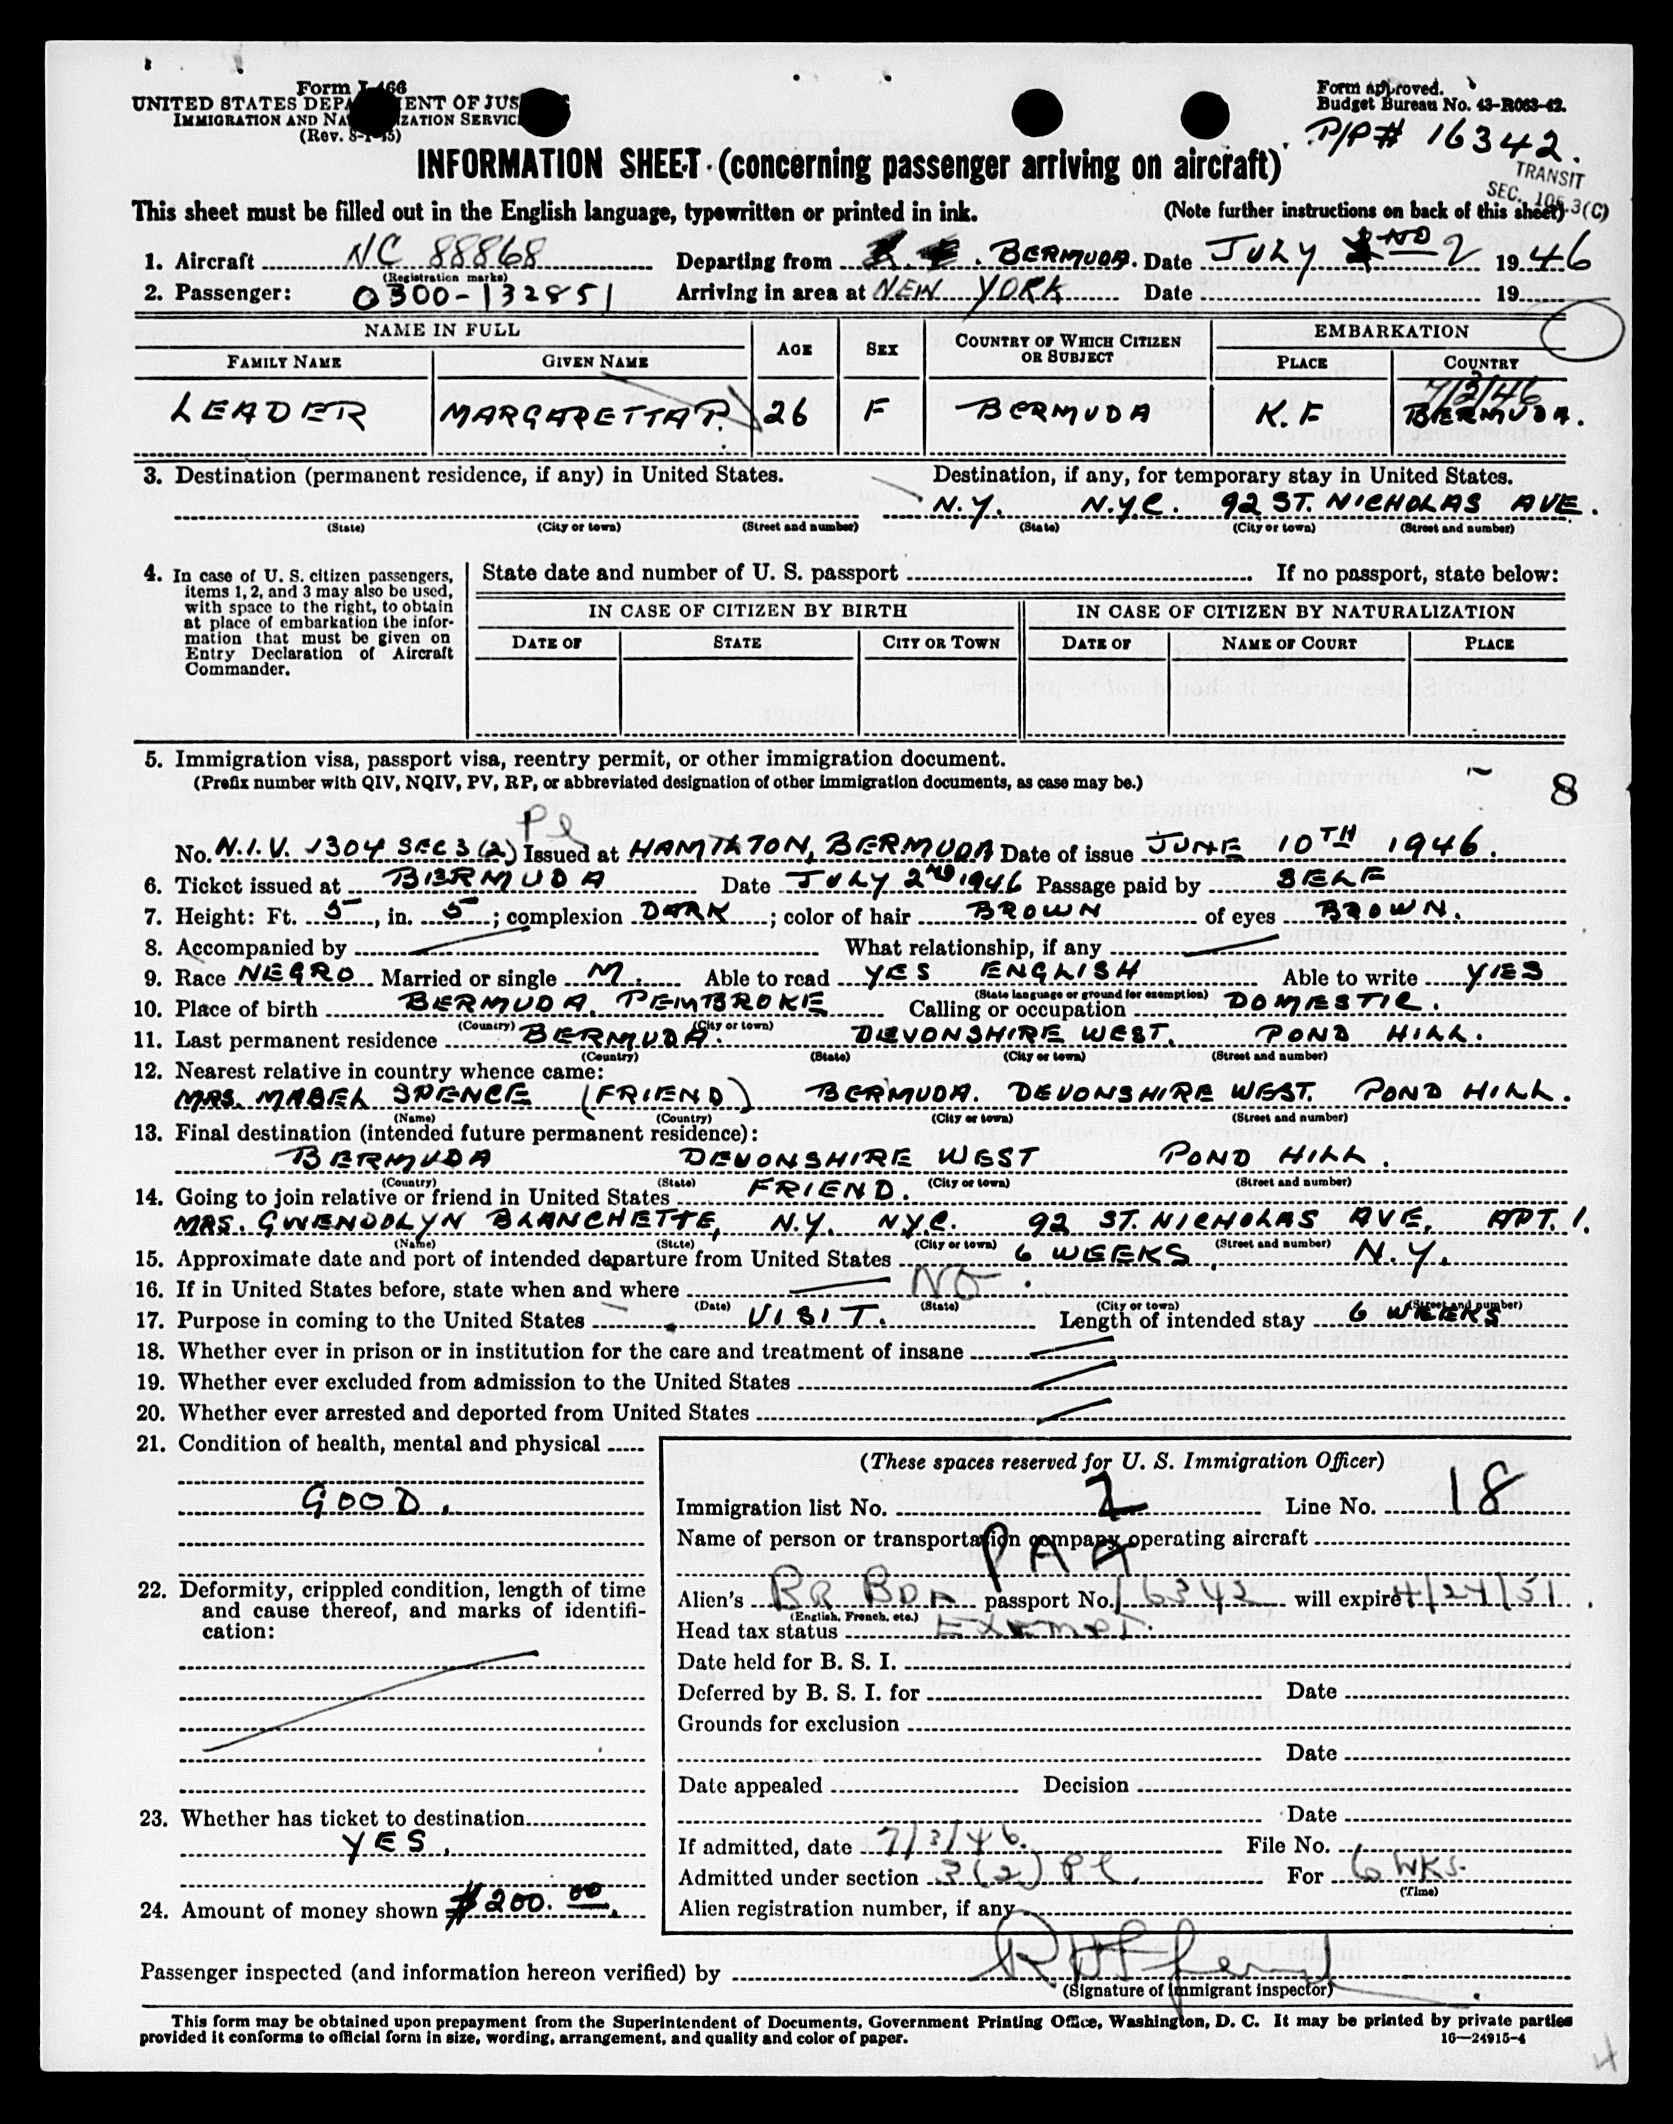 Form I-466
UNITED STATES DEPARTMENT OF JUSTICE
IMMIGRATION AND NATURALIZATION SERVICE
(Rev. 8-1-45)
Form approved.
Budget Bureau No. 43-R063-42.
P/P# 16342.
TRANSIT
SEC. 105.3(C)
INFORMATION SHEET (concerning passenger arriving on aircraft)
This sheet must be filled out in the English language, typewritten or printed in ink. (Note further instructions on back of this sheet)
1. Aircraft NC 88868 Departing from BERMUDA. Date JULY 2ND 2 1946
(Registration marks)
2. Passenger: 0300-132851 Arriving in area at NEW YORK Date 19
NAME IN FULL AGE SEX COUNTRY OF WHICH CITIZEN OR SUBJECT EMBARKATION
FAMILY NAME GIVEN NAME PLACE COUNTRY
7/3/46
LEADER MARGARETTA P. 26 F BERMUDA K.F BERMUDA.
3. Destination (permanent residence, if any) in United States. Destination, if any, for temporary stay in United States.
N.Y. N.Y.C. 92 ST. NICHOLAS AVE.
(State) (City or town) (Street and number) (State) (City or town) (Street and number)
4. In case of U. S. citizen passengers, items 1, 2, and 3 may also be used, with space to the right, to obtain at place of embarkation the information that must be given on Entry Declaration of Aircraft Commander.
State date and number of U. S. passport If no passport, state below:
IN CASE OF CITIZEN BY BIRTH IN CASE OF CITIZEN BY NATURALIZATION
DATE OF STATE CITY OR TOWN DATE OF NAME OF COURT PLACE
5. Immigration visa, passport visa, reentry permit, or other immigration document.
(Prefix number with QIV, NQIV, PV, RP, or abbreviated designation of other immigration documents, as case may be.)
8
Pl
No. N.I.V. 1304 SEC 3 (2) Issued at HAMILTON, BERMUDA Date of issue JUNE 10TH 1946.
6. Ticket issued at BERMUDA Date JULY 2ND 1946 Passage paid by SELF
7. Height: Ft. 5, in. 5; complexion DARK; color of hair BROWN of eyes BROWN.
8. Accompanied by What relationship, if any
9. Race NEGRO Married or single M. Able to read YES ENGLISH Able to write YES
(State language or ground for exemption)
10. Place of birth BERMUDA, PEMBROKE Calling or occupation DOMESTIC.
(Country) (City or town)
11. Last permanent residence BERMUDA. DEVONSHIRE WEST. POND HILL.
(Country) (State) (City or town) (Street and number)
12. Nearest relative in country whence came:
MRS. MABEL SPENCE (FRIEND) BERMUDA. DEVONSHIRE WEST. POND HILL.
(Name) (Country) (City or town) (Street and number)
13. Final destination (intended future permanent residence):
BERMUDA DEVONSHIRE WEST POND HILL.
(Country) (State) (City or town) (Street and number)
14. Going to join relative or friend in United States FRIEND.
MRS. GWENDOLYN BLANCHETTE, N.Y. N.Y.C. 92 ST. NICHOLAS AVE, APT. 1.
(Name) (State) (City or town) (Street and number)
15. Approximate date and port of intended departure from United States 6 WEEKS, N.Y.
16. If in United States before, state when and where NO
(Date) (State) (City or town) (Street and number)
17. Purpose in coming to the United States VISIT. Length of intended stay 6 WEEKS
18. Whether ever in prison or in institution for the care and treatment of insane
19. Whether ever excluded from admission to the United States
20. Whether ever arrested and deported from United States
21. Condition of health, mental and physical
GOOD.
22. Deformity, crippled condition, length of time and cause thereof, and marks of identification:
23. Whether has ticket to destination
YES.
24. Amount of money shown $200.00
(These spaces reserved for U. S. Immigration Officer)
Immigration list No. 2 Line No. 18
Name of person or transportation company operating aircraft
PAA
Alien's BR BDA passport No. 16342 will expire 4/24/51.
(English, French, etc.)
Head tax status Exempt.
Date held for B. S. I.
Deferred by B. S. I. for Date
Grounds for exclusion
Date
Date appealed Decision
Date
If admitted, date 7/3/46. File No.
Admitted under section 3(2) Pl. For 6 WKS.
(Time)
Alien registration number, if any
Passenger inspected (and information hereon verified) by
(Signature of immigrant inspector)
This form may be obtained upon prepayment from the Superintendent of Documents, Government Printing Office, Washington, D. C. It may be printed by private parties
provided it conforms to official form in size, wording, arrangement, and quality and color of paper. 16—24915-4
4